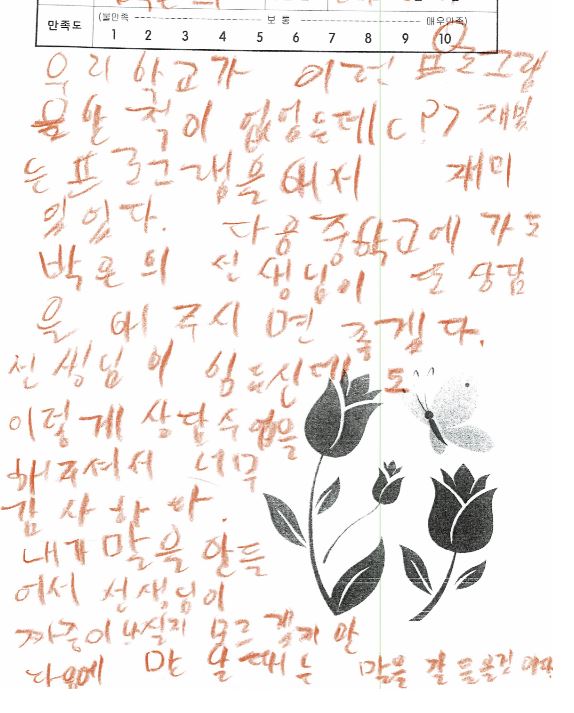 만족도 (불만족 보통 매우만족)
1 2 3 4 5 6 7 8 9 10
우리 학교가 이런 프로그램
을 한 적이 없었는데 CPR 재밌
는 프로그램을 해서 재미
있었다. 다음 중학교에 가도
박은의 선생님이 또 상담
을 해 주시면 좋겠다.
선생님이 힘드신데도
이렇게 상담수업을
해주셔서 너무
감사하다.
내가 말을 안들
어서 선생님이
짜증이 나실지 모르겠지만
다음에 만날 때는 말을 잘 들을